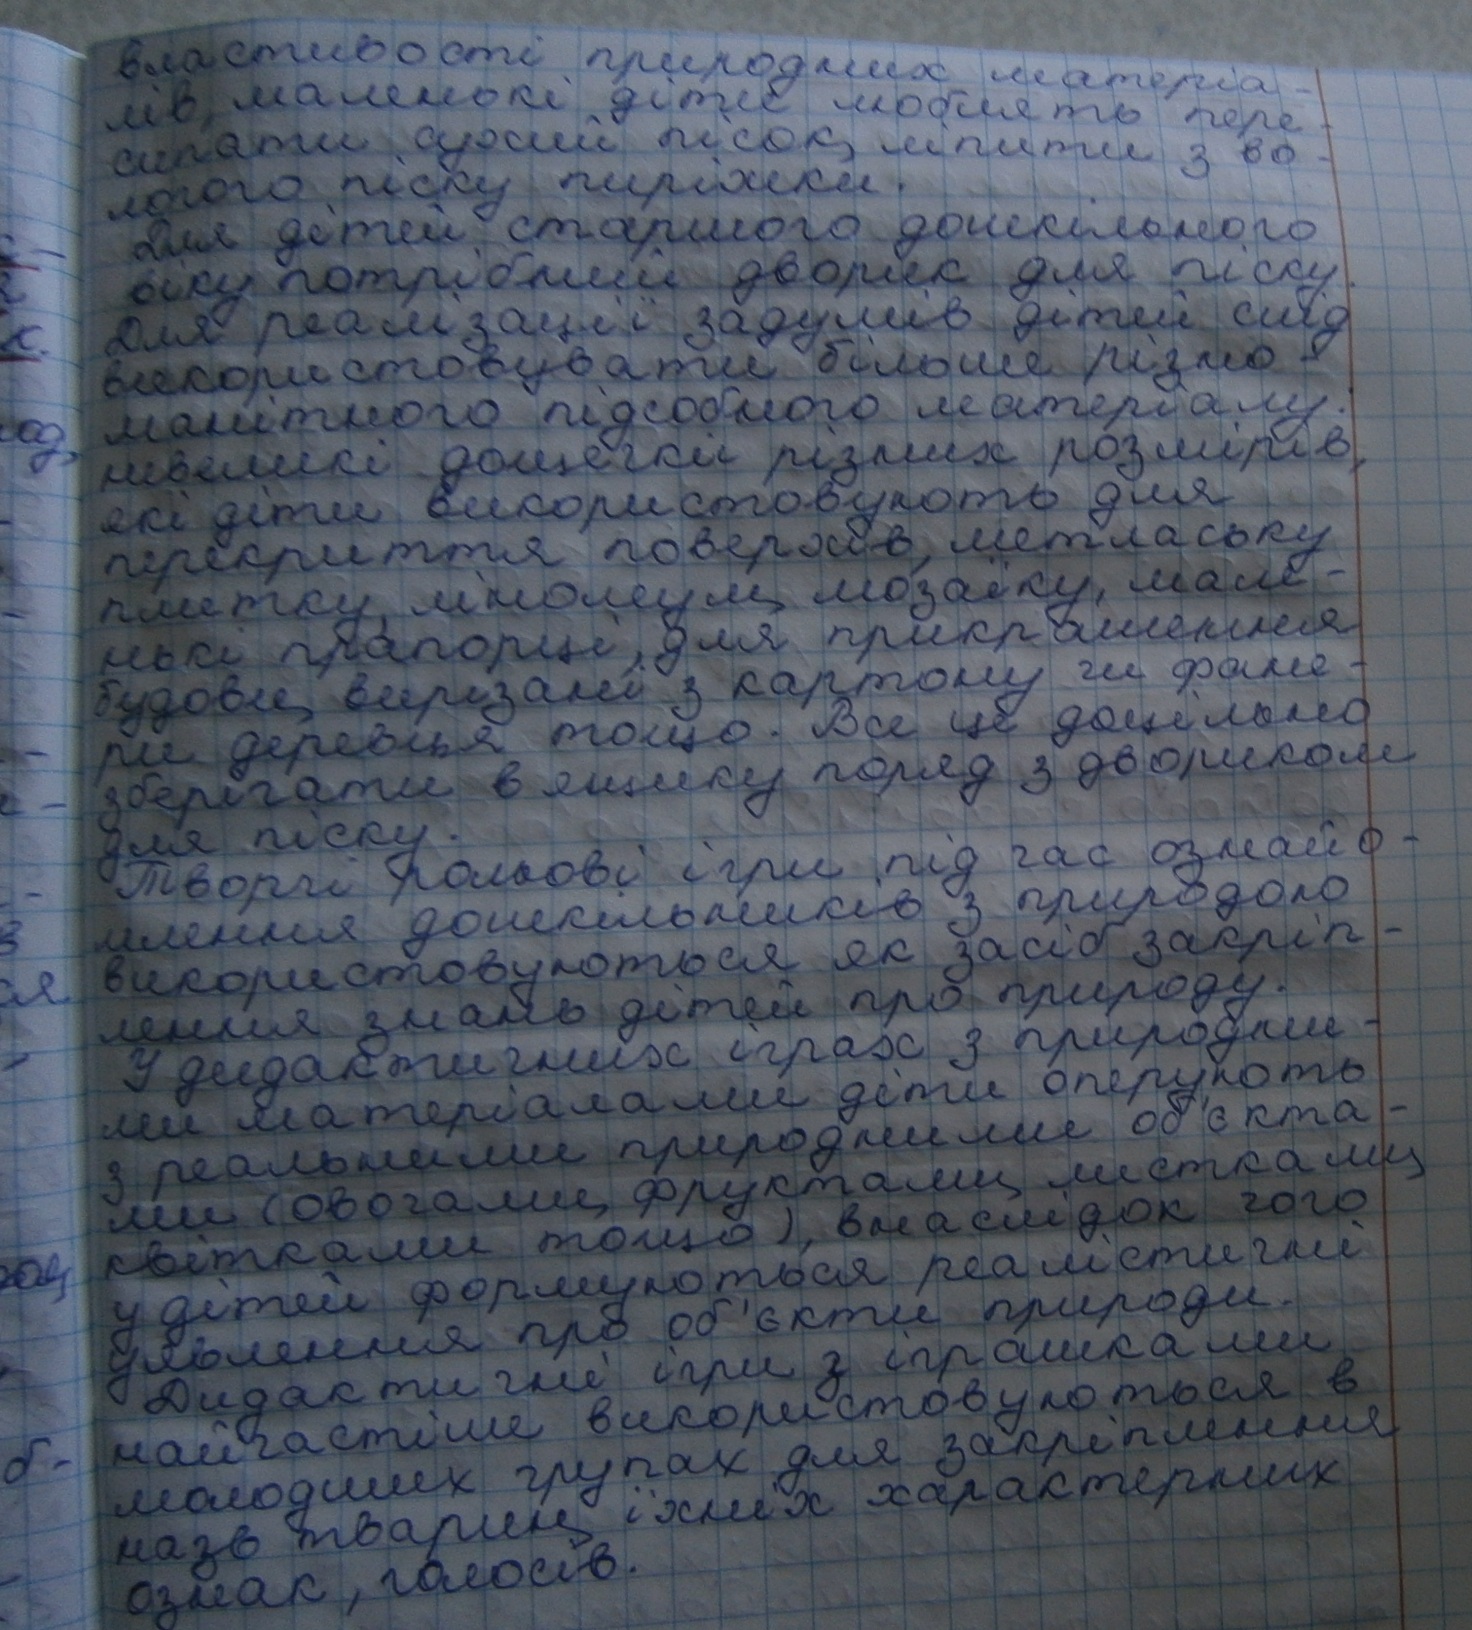 властивості природних матеріа-
лів, маленькі діти люблять пере-
сипати сухий пісок, ліпити з во-
логого піску пиріжки.
Для дітей старшого дошкільного
віку потрібний дворик для піску.
Для реалізації задумів дітей слід
використовувати більше різно-
манітного підсобного матеріалу:
невеликі дощечки різних розмірів,
які діти використовують для
перекриття поверхів, метлаську
плитку, лінолеум, мозаїку, мале-
нькі прапорці, для прикрашення
будови, вирізаней з картону чи фане-
ри деревця тощо. Все це доцільно
зберігати в ящику поряд з двориком
для піску.
Творчі рольові ігри під час ознайо-
млення дошкільників з природою
використовуються як засіб закріп-
лення знань дітей про природу.
У дидактичних іграх з природни-
ми матеріалами діти оперують
з реальними природними об'єкта-
ми (овочами, фруктами, листками,
квітками тощо), внаслідок чого
у дітей формуються реалістичні
уявлення про об'єкти природи.
Дидактичні ігри з іграшками
найчастіше використовуються в
молодших групах для закріплення
назв тварин, їхніх характерних
ознак, голосів.